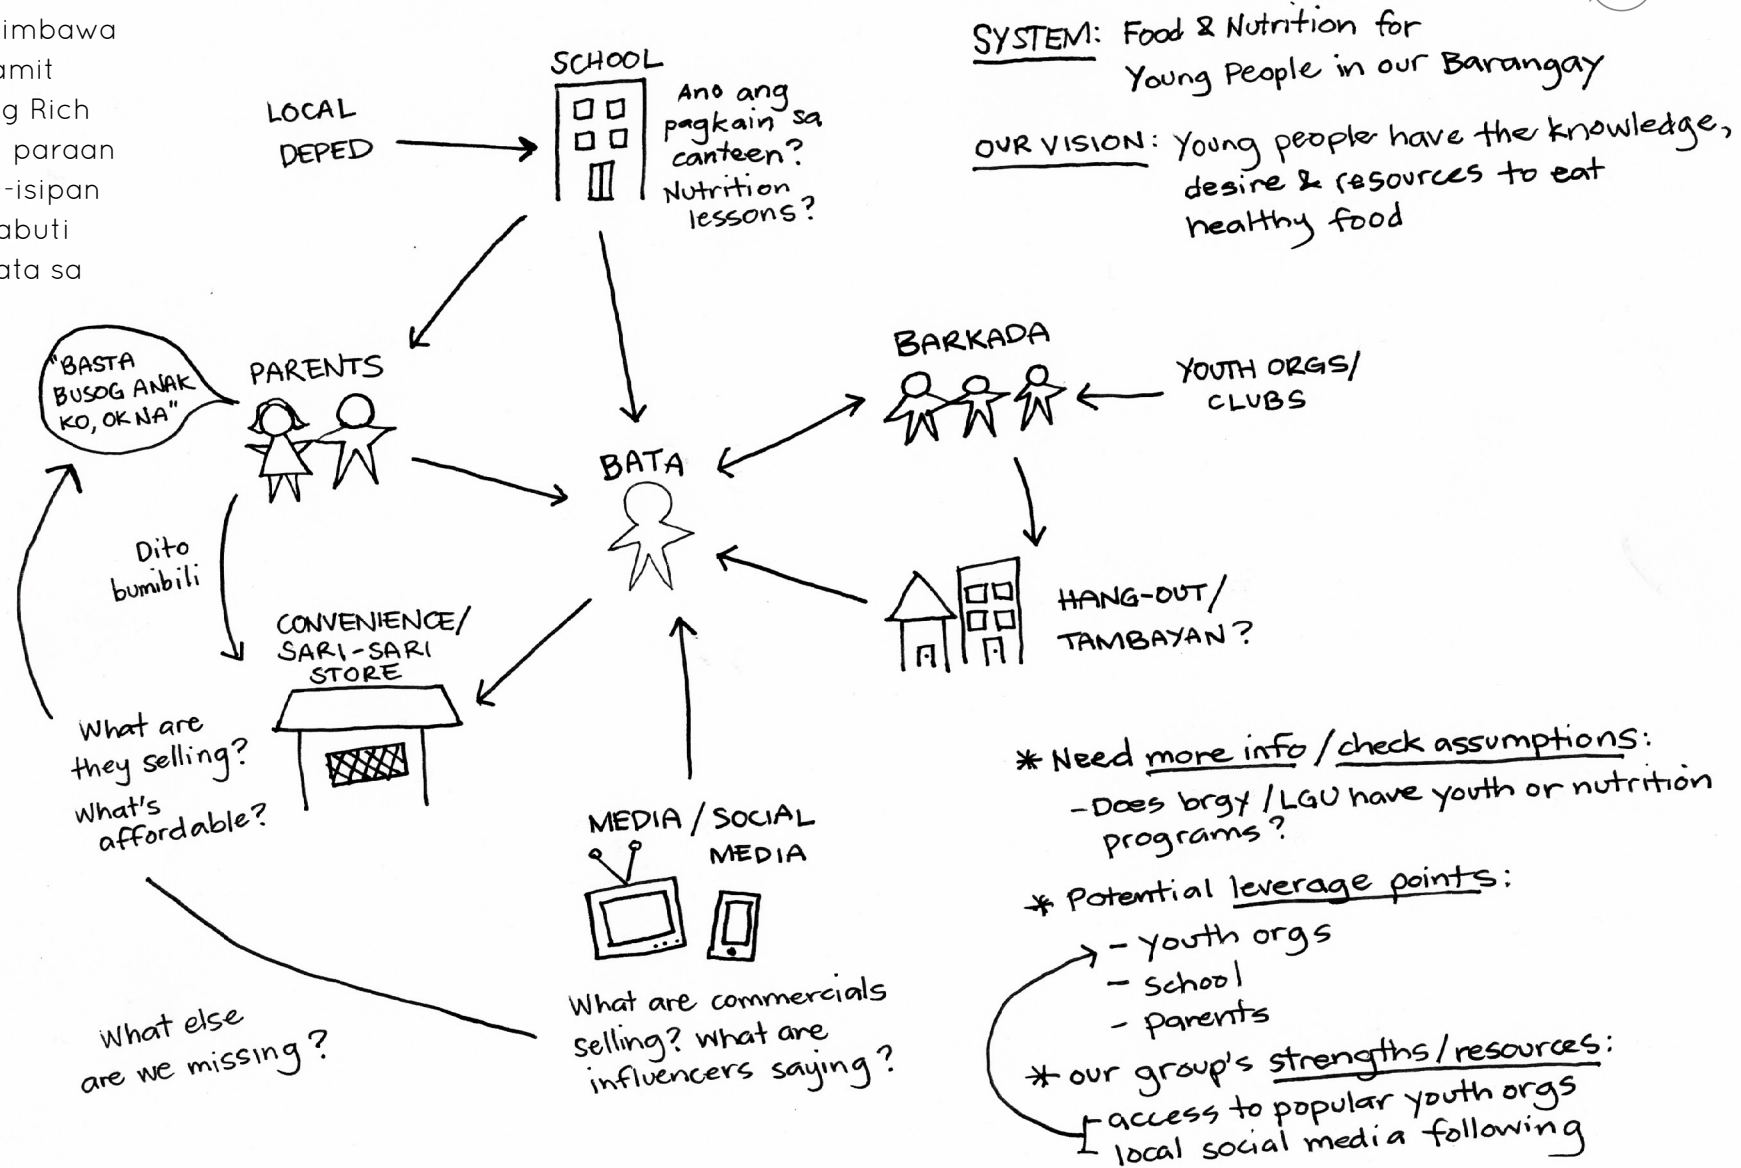 imbawa
amit
g Rich
paraan
-isipan
abuti
ata sa
SYSTEM: Food & Nutrition for
Young People in our Barangay
OUR VISION: Young people have the knowledge,
desire & resources to eat
healthy food
SCHOOL
Ano ang
pagkain sa
canteen?
Nutrition
lessons?
LOCAL
DEPED
"BASTA
BUSOG ANAK
KO, OK NA"
PARENTS
BARKADA
YOUTH ORGS/
CLUBS
BATA
Dito
bumibili
CONVENIENCE/
SARI-SARI
STORE
HANG-OUT/
TAMBAYAN?
What are
they selling?
What's
affordable?
MEDIA / SOCIAL
MEDIA
What are commercials
selling? What are
influencers saying?
What else
are we missing?
* Need more info / check assumptions:
- Does brgy / LGU have youth or nutrition
programs?
* Potential leverage points:
- youth orgs
- school
- parents
* our group's strengths/resources:
- access to popular youth orgs
- local social media following